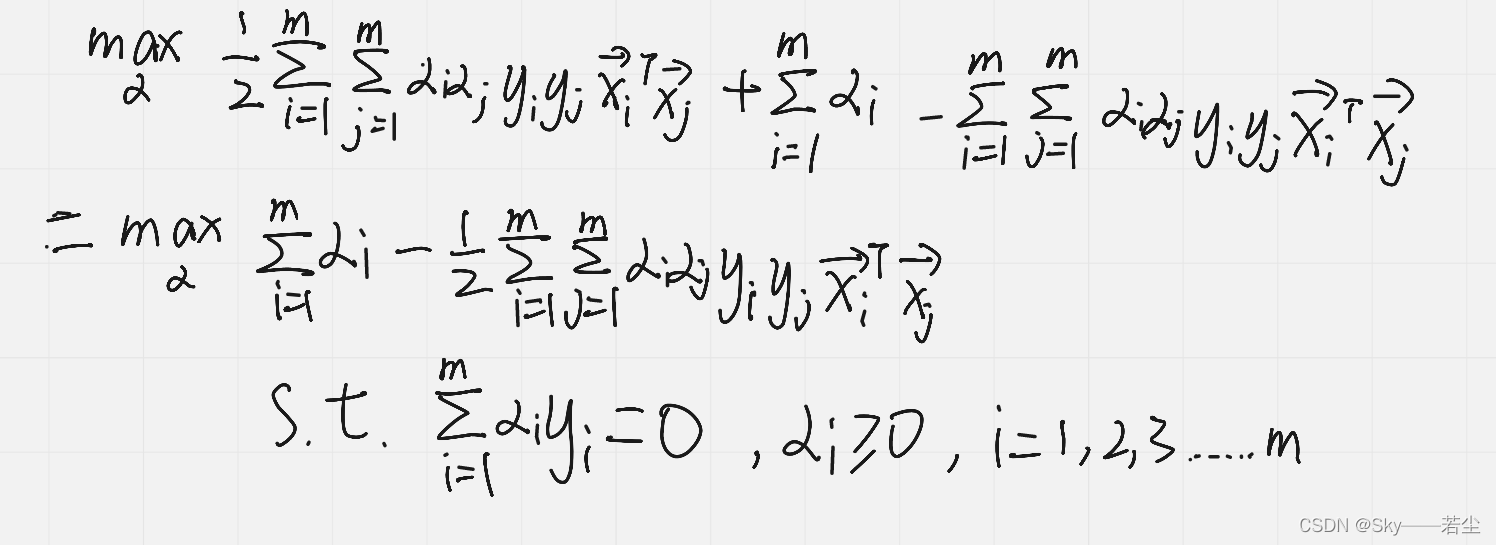 $\max_{\alpha} \frac{1}{2}\sum_{i=1}^{m}\sum_{j=1}^{m} \alpha_i\alpha_j y_i y_j \vec{x_i}^T\vec{x_j} + \sum_{i=1}^{m}\alpha_i - \sum_{i=1}^{m}\sum_{j=1}^{m} \alpha_i\alpha_j y_i y_j \vec{x_i}^T\vec{x_j}$
$= \max_{\alpha} \sum_{i=1}^{m}\alpha_i - \frac{1}{2}\sum_{i=1}^{m}\sum_{j=1}^{m} \alpha_i\alpha_j y_i y_j \vec{x_i}^T\vec{x_j}$
$s.t. \sum_{i=1}^{m}\alpha_i y_i = 0 , \alpha_i \geqslant 0 , i=1,2,3......m$
CSDN @Sky——若尘